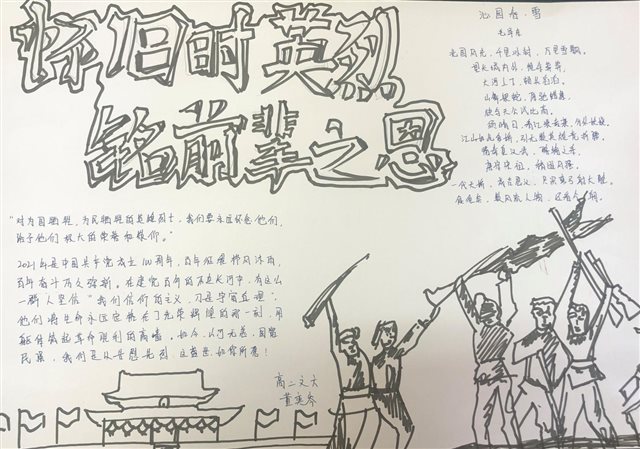 怀旧时英烈
铭前辈之恩
沁园春·雪
毛泽东
北国风光，千里冰封，万里雪飘。
望长城内外，惟余莽莽，
大河上下，顿失滔滔。
山舞银蛇，原驰蜡象，
欲与天公试比高。
须晴日，看红装素裹，分外妖娆。
江山如此多娇，引无数英雄竞折腰。
惜秦皇汉武，略输文采，
唐宗宋祖，稍逊风骚。
一代天骄，成吉思汗，只识弯弓射大雕。
俱往矣，数风流人物，还看今朝。
"对为国牺牲，为民牺牲的英雄烈士，我们要永远怀念他们，
给予他们极大的荣誉和敬仰。"
2021年是中国共产党成立100周年，百年征程栉风沐雨，
百年奋斗历久弥新。在建党百年的历史长河中，有这么
一群人坚信"我们信仰的主义，乃是宇宙真理"；
他们将生命永远定格在了光荣辉煌的那一刻，用
躯体筑起革命胜利的高墙。如今，山河无恙，国富
民强，我们足以告慰先烈，这盛世，如你所愿！
高二文六